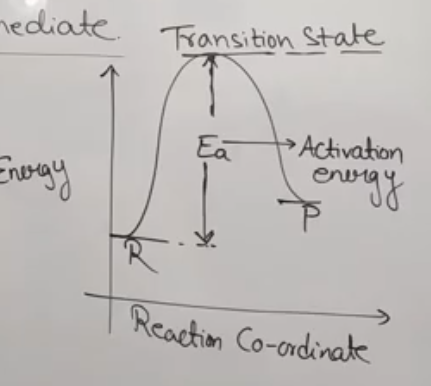 mediate.
Transition State
Energy
Ea
Activation
energy
P
R
Reaction Co-ordinate